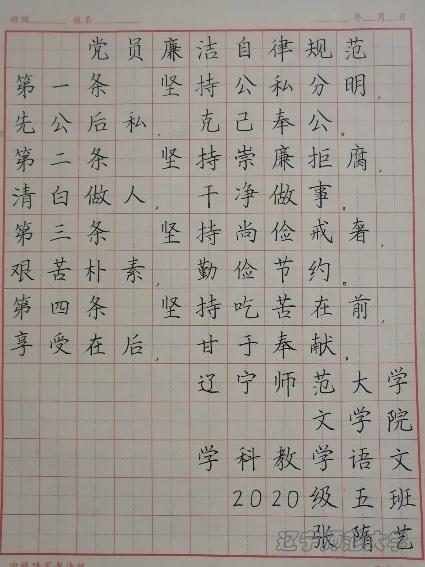 班级 姓名 年 月 日
党员廉洁自律规范
第一条 坚持公私分明,
先公后私,克己奉公。
第二条 坚持崇廉拒腐,
清白做人,干净做事。
第三条 坚持尚俭戒奢,
艰苦朴素,勤俭节约。
第四条 坚持吃苦在前,
享受在后,甘于奉献。
辽宁师范大学
文学院
学科教学语文
2020级五班
张隋艺
辽宁师范大学